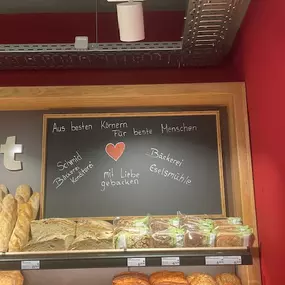 Aus besten Körnern
Für beste Menschen
Schmid
Bäckerei
Konditorei
mit Liebe
gebacken
Bäckerei
Eselsmühle
t